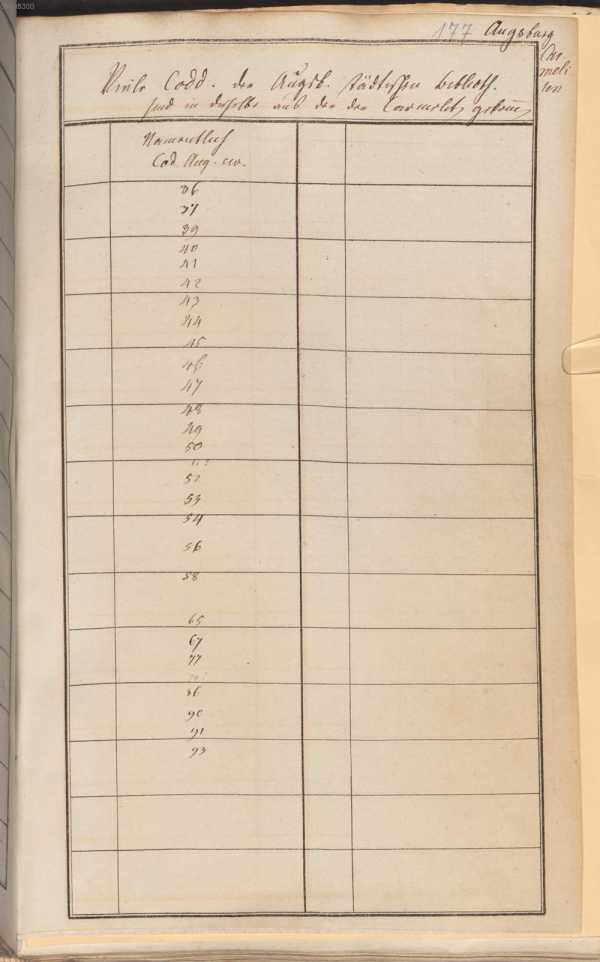 177 Augsburg
Car
meli
ten
Viele Codd. der Augsb. städtischen Biblioth.
sind in derselbe aus der der Carmelit,
Namentlich
Cod. Aug. ew.
36
37
39
40
41
42
43
44
45
46
47
48
49
50
52
53
54
56
58
65
67
77
86
90
91
93